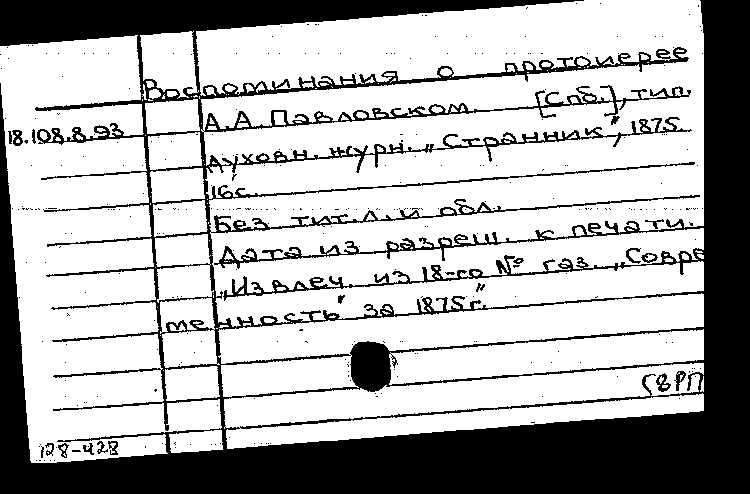 Воспоминания о протоиерее
18.108.8.93
А.А. Павловском. [Спб.], тип.
духовн. журн. „Странник", 1875.
16с.
Без тит.л. и обл.
Дата из разреш. к печати.
„Извлеч. из 18-го № газ. „Совре
менность" за 1875г."
128-428